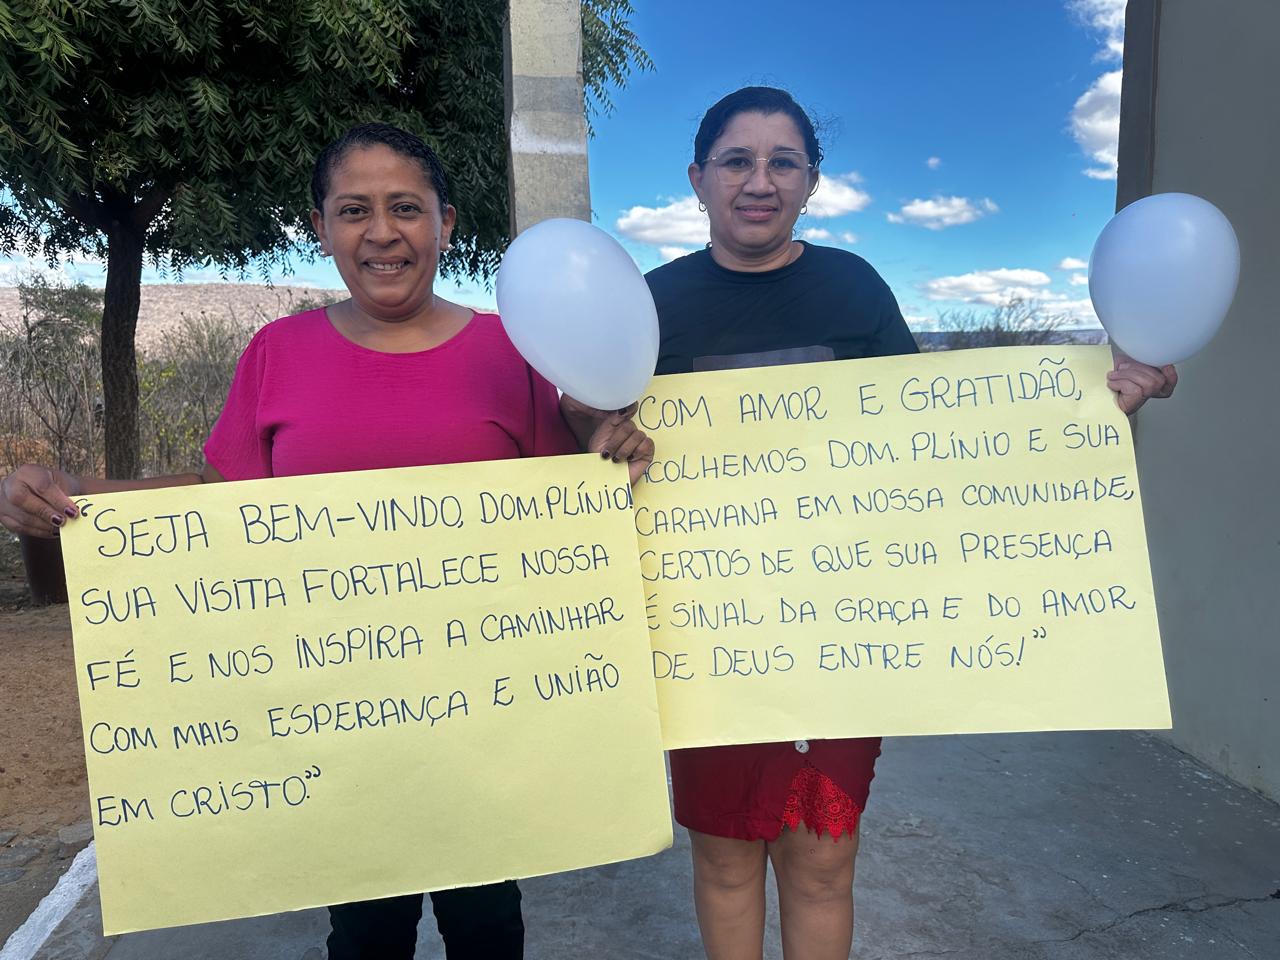 “SEJA BEM-VINDO, DOM. PLÍNIO!
SUA VISITA FORTALECE NOSSA
FÉ E NOS INSPIRA A CAMINHAR
COM MAIS ESPERANÇA E UNIÃO
EM CRISTO.”
COM AMOR E GRATIDÃO,
ACOLHEMOS DOM. PLÍNIO E SUA
CARAVANA EM NOSSA COMUNIDADE,
CERTOS DE QUE SUA PRESENÇA
É SINAL DA GRAÇA E DO AMOR
DE DEUS ENTRE NÓS!”